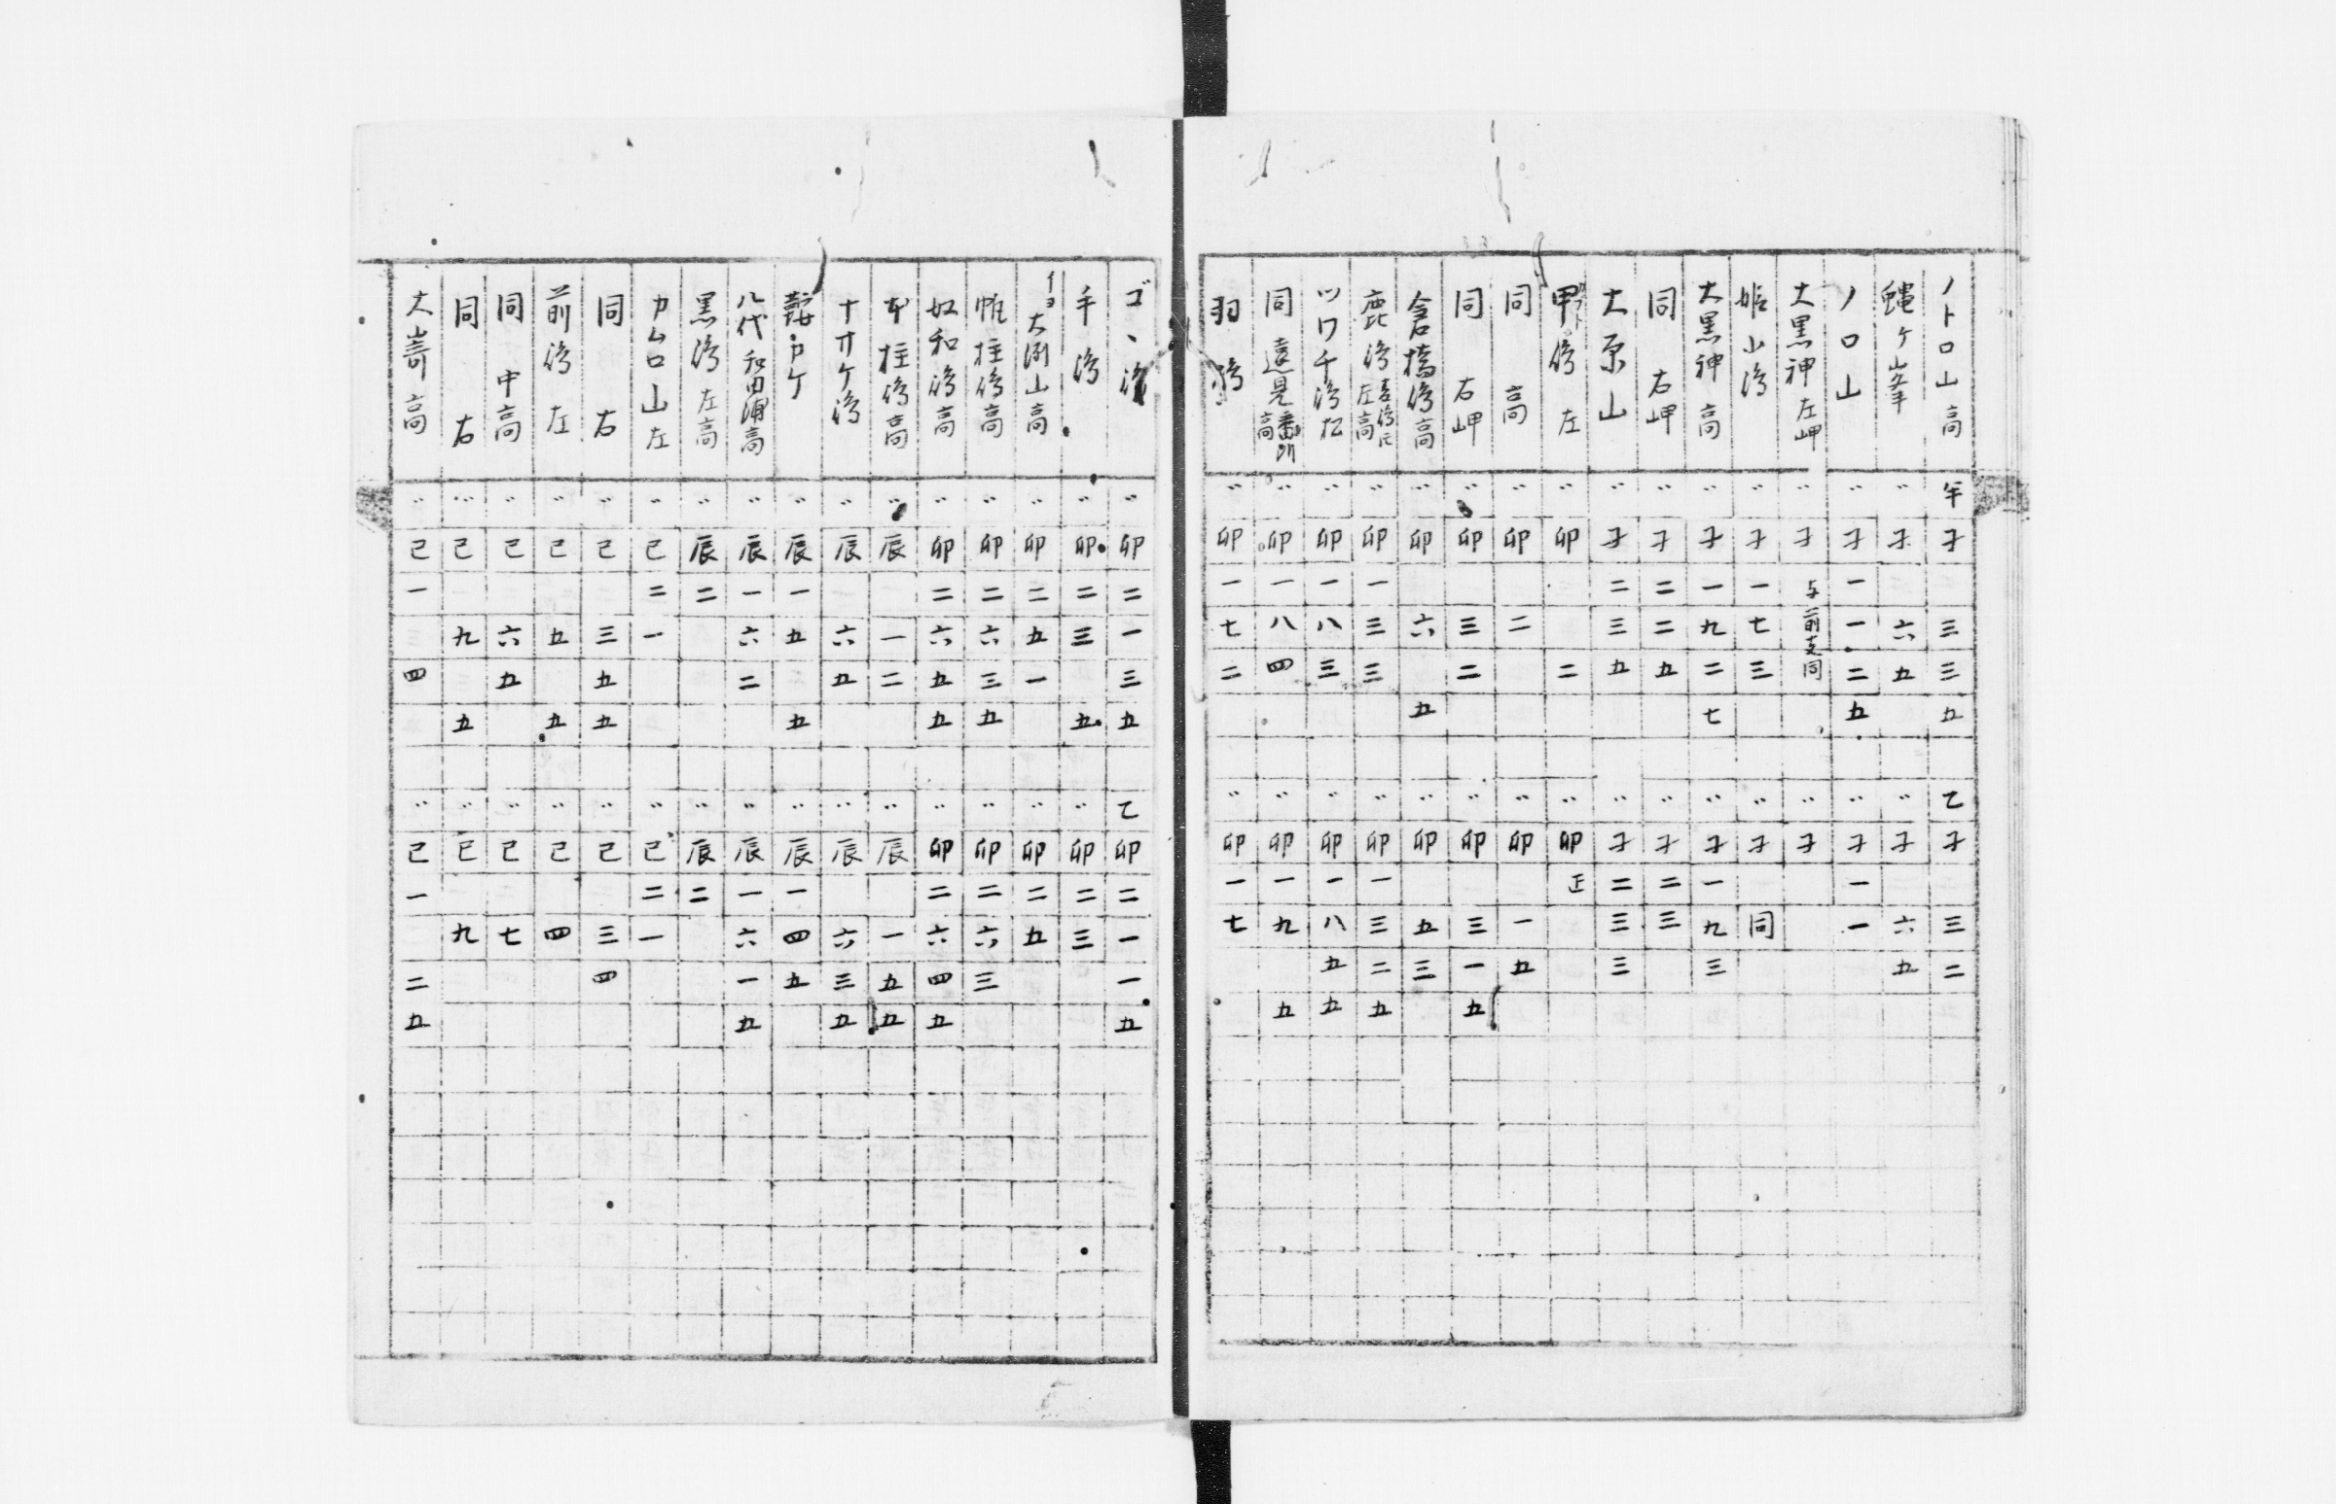 ノトロ山 高 午 子 三 三 五 乙 子 三 二
蠅ヶ峯 〃 子 六 五 〃 子 六 五
ノロ山 〃 子 一 一 二 五 〃 子 一 一
大黒神 左岬 〃 子 与前支同 〃 子
姫小島 〃 子 一 七 三 〃 子 同
大黒神 高 〃 子 一 九 二 七 〃 子 一 九 三
同 右岬 〃 子 二 二 五 〃 子 二 三
大原山 〃 子 二 三 五 〃 子 二 三 三
甲島 左 〃 卯 二 〃 卯 正
同 高 〃 卯 二 〃 卯 一 五
同 右岬 〃 卯 三 二 〃 卯 三 一 五
倉橋島高 〃 卯 六 五 〃 卯 五 三
鹿島 左高 〃 卯 一 三 三 〃 卯 一 三 二 五
ツワ千島松 〃 卯 一 八 三 〃 卯 一 八 五 五
同 遠見番所高 〃 卯 一 八 四 〃 卯 一 九 五
羽島 〃 卯 一 七 二 〃 卯 一 七
ゴヽ島 〃 卯 二 一 三 五 乙 卯 二 一 一 五
手島 〃 卯 二 三 五 〃 卯 二 三
大洲山高 〃 卯 二 五 一 〃 卯 二 五
柱島高 〃 卯 二 六 三 五 〃 卯 二 六 三
奴和島高 〃 卯 二 六 五 五 〃 卯 二 六 四 五
柱島高 〃 辰 一 二 〃 辰 一 五 五
ナオケ島 〃 辰 六 五 〃 辰 六 三 五
鞍カケ 〃 辰 一 五 五 〃 辰 一 四 五
八代和田浦高 〃 辰 一 六 二 〃 辰 一 六 一 五
黒島 左高 〃 辰 二 〃 辰 二
カムロ山左 〃 巳 二 一 〃 巳 二 一
同 右 〃 巳 三 五 五 〃 巳 三 四
前島 左 〃 巳 五 五 〃 巳 四
同 中高 〃 巳 六 五 〃 巳 七
同 右 〃 巳 九 五 〃 巳 九
大嵜高 〃 巳 一 四 〃 巳 一 二 五